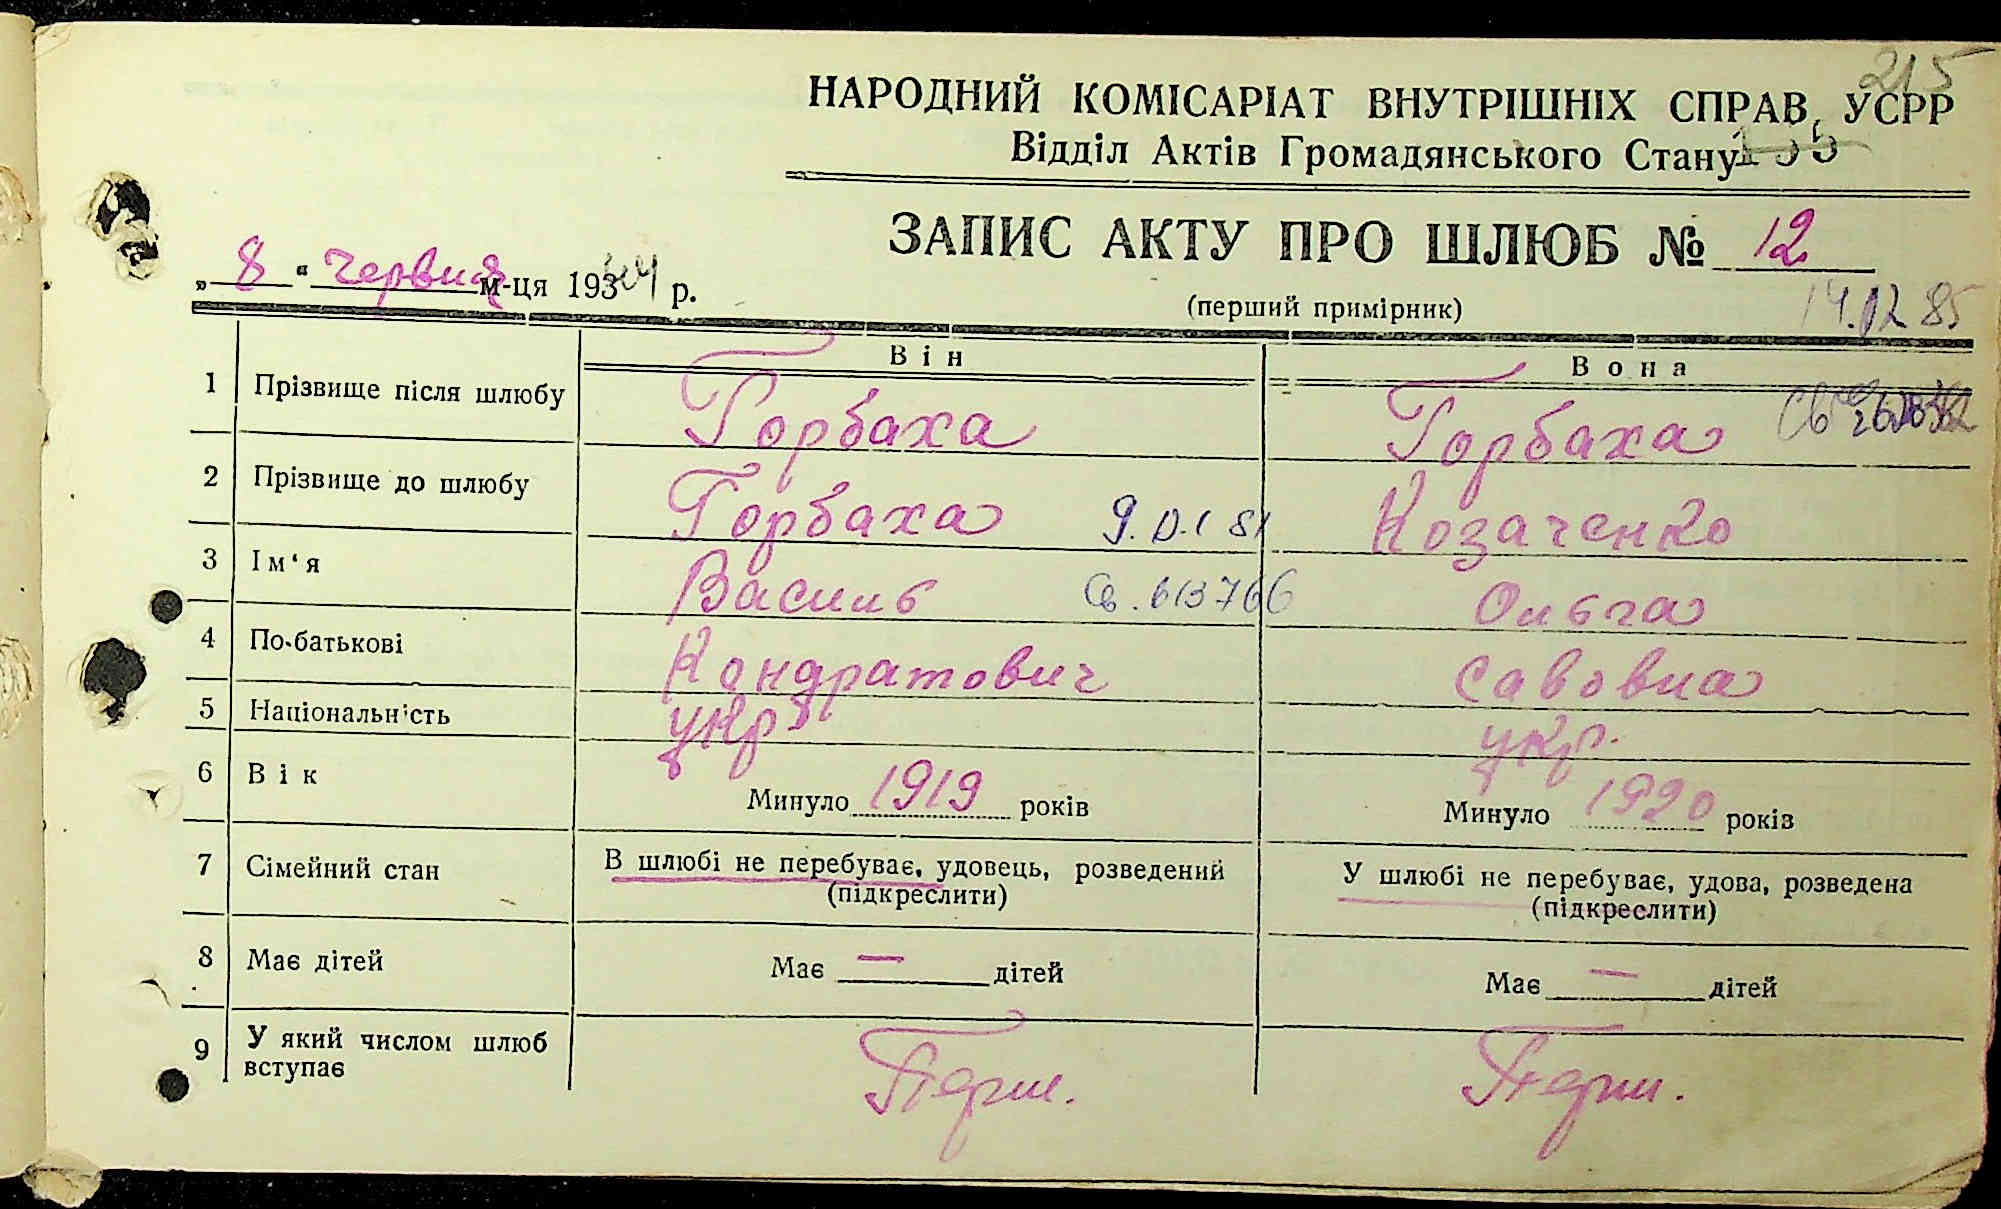 215
НАРОДНИЙ КОМІСАРІАТ ВНУТРІШНІХ СПРАВ, УСРР
Відділ Актів Громадянського Стану
ЗАПИС АКТУ ПРО ШЛЮБ № 12
„ 8 “ червня м-ця 193 р.
(перший примірник)
14.02 85
Він Вона
1 Прізвище після шлюбу Горбаха Горбаха
2 Прізвище до шлюбу Горбаха Козаченко
3 Ім‘я Василь Св. 613766 Ольга
4 По-батькові Кондратович Савовна
5 Національність укр укр.
6 Вік Минуло 1919 років Минуло 1920 років
7 Сімейний стан В шлюбі не перебуває, удовець, розведений У шлюбі не перебуває, удова, розведена
(підкреслити) (підкреслити)
8 Має дітей Має — дітей Має — дітей
9 У який числом шлюб вступає Перш. Перш.